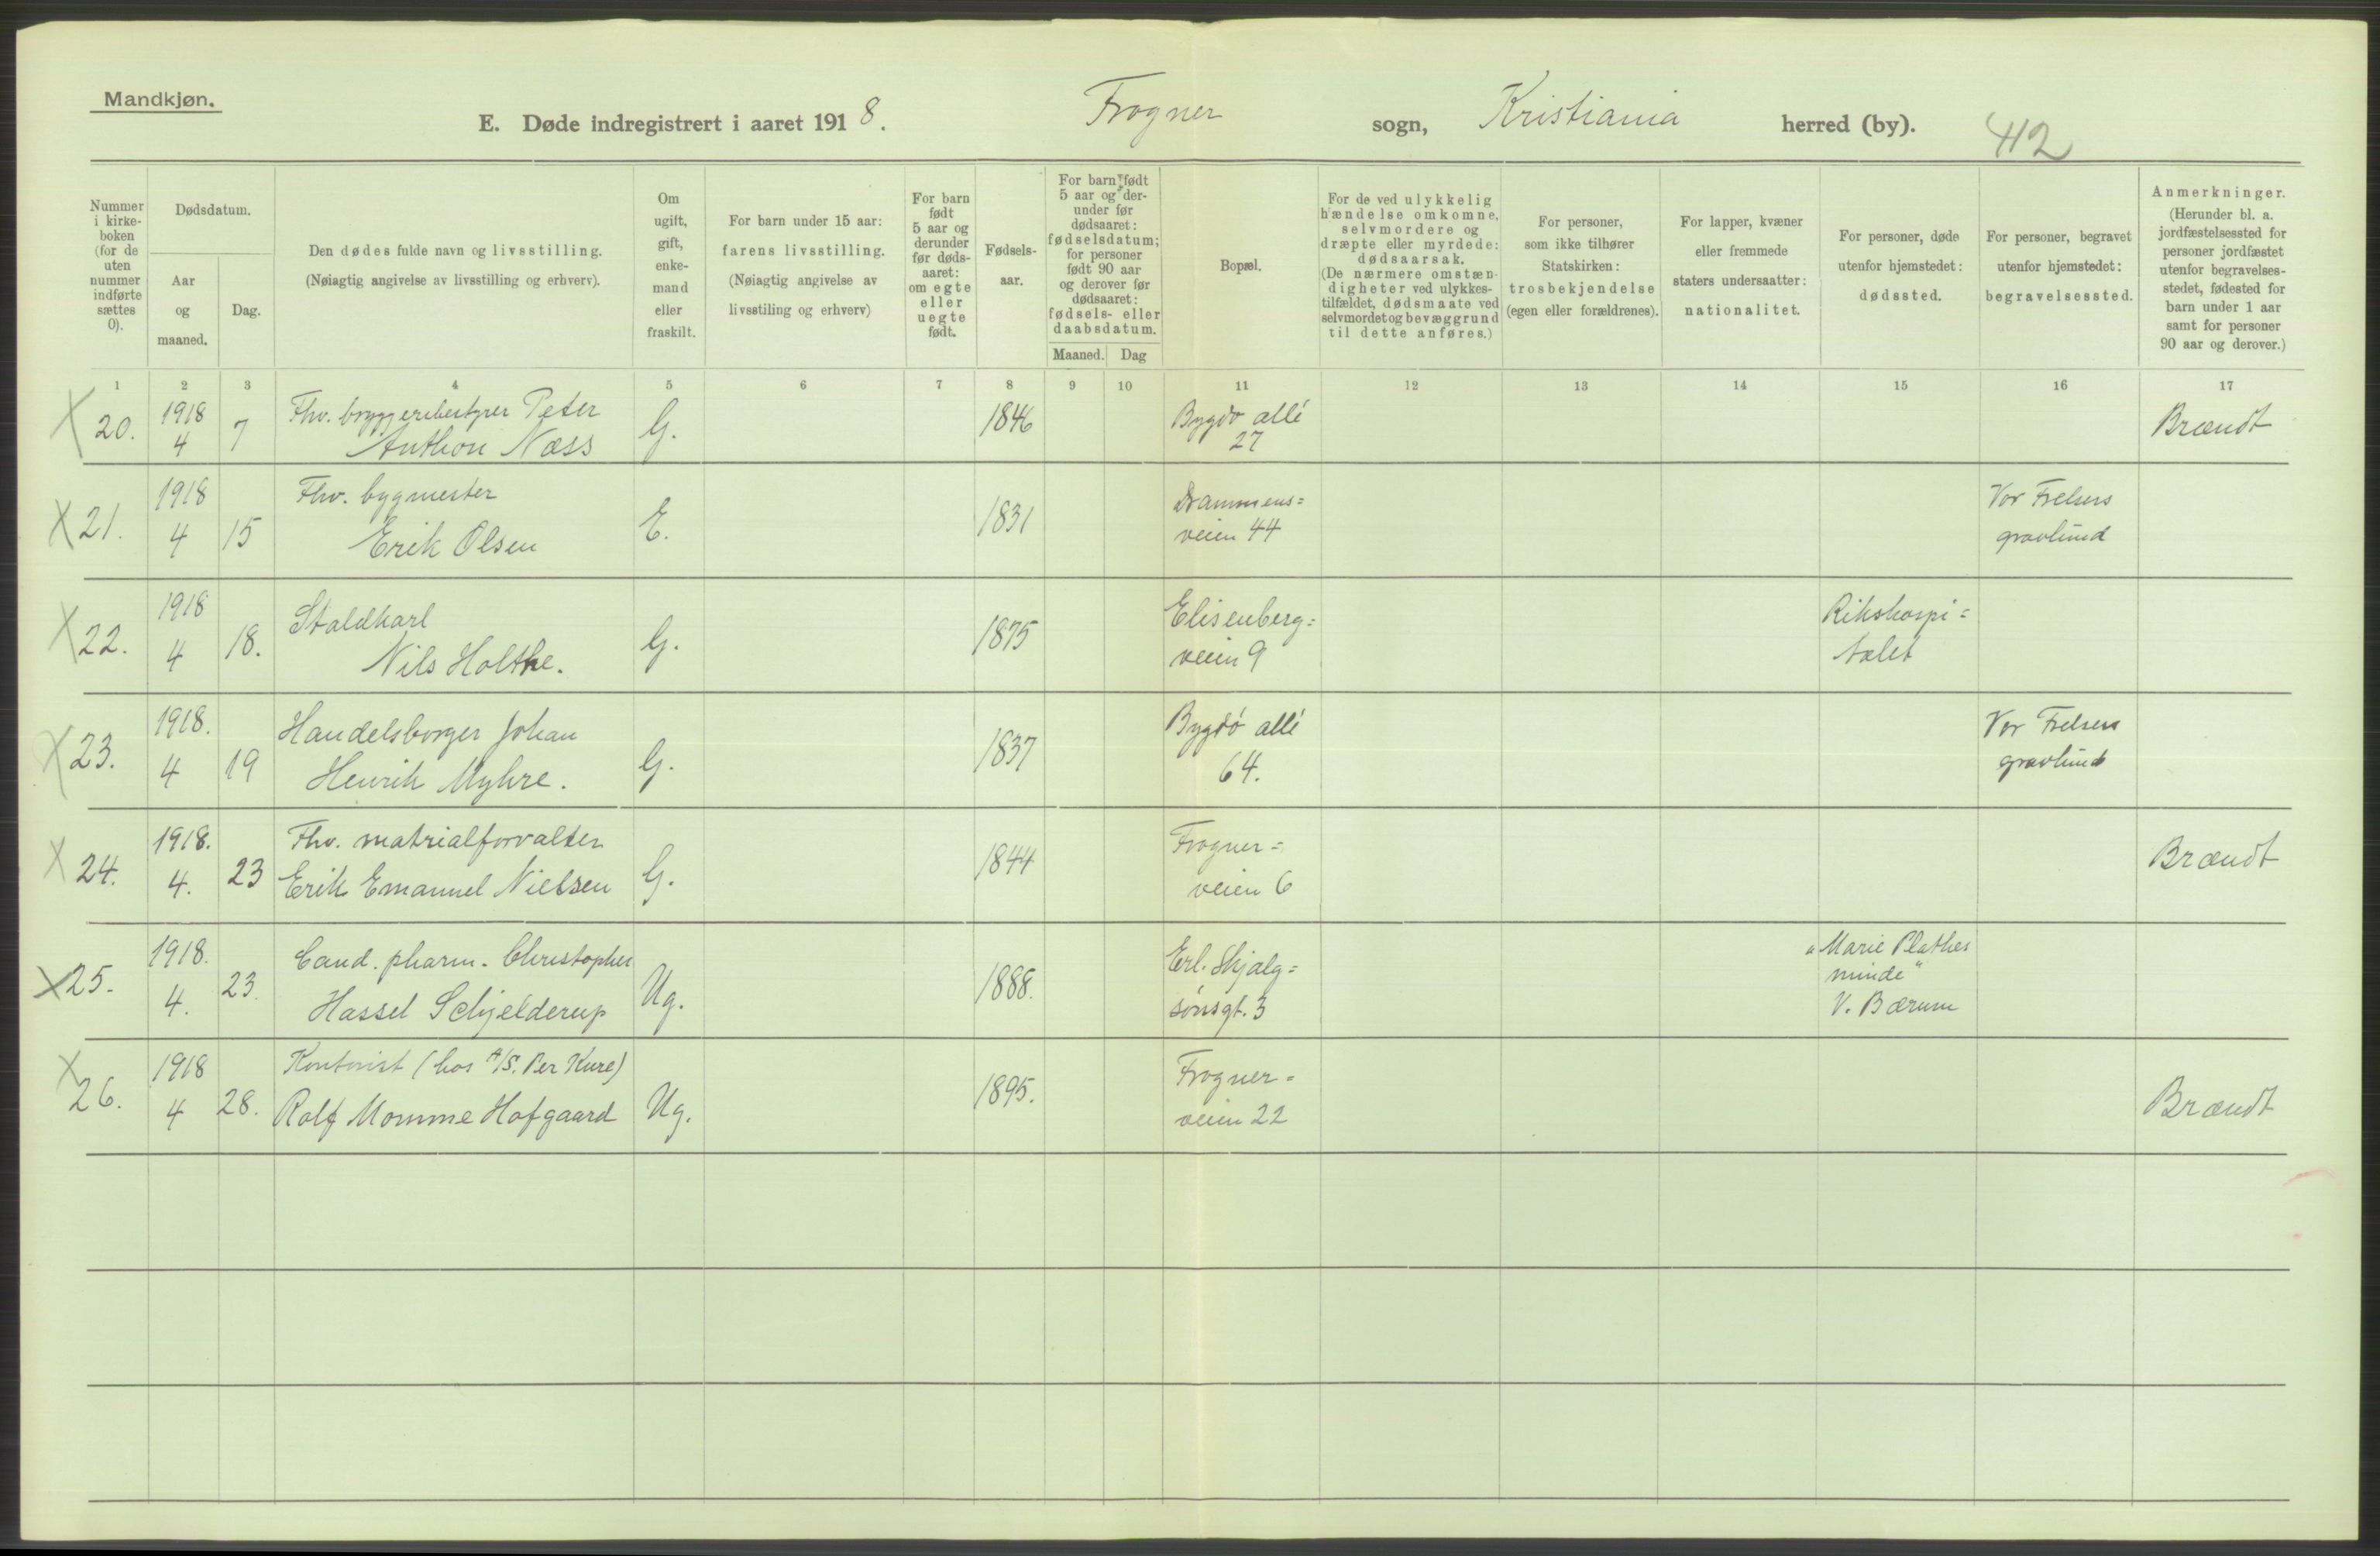 Mandkjøn.
E. Døde indregistrert i aaret 1918. Frogner sogn, Kristiania herred (by). 42
Nummer i kirkeboken (for de uten nummer indførte sættes 0).
Dødsdatum.
Aar og maaned.
Dag.
Den dødes fulde navn og livsstilling.
(Nøiagtig angivelse av livsstilling og erhverv).
Om ugift, gift, enkemand eller fraskilt.
For barn under 15 aar:
farens livsstilling.
(Nøiagtig angivelse av
livsstiling og erhverv)
For barn født 5 aar og derunder før dødsaaret: om egte eller uegte født.
Fødselsaar.
For barn født 5 aar og derunder før dødsaaret: fødselsdatum; for personer født 90 aar og derover før dødsaaret: fødsels- eller daabsdatum.
Maaned. Dag
Bopæl.
For de ved ulykkelig hændelse omkomne, selvmordere og dræpte eller myrdede: dødsaarsak.
(De nærmere omstændigheter ved ulykkestilfældet, dødsmaate ved selvmordet og bevæggrund til dette anføres.)
For personer, som ikke tilhører Statskirken: trosbekjendelse (egen eller forældrenes).
For lapper, kvæner eller fremmede staters undersaatter: nationalitet.
For personer, døde utenfor hjemstedet: dødssted.
For personer, begravet utenfor hjemstedet: begravelsessted.
Anmerkninger.
(Herunder bl. a. jordfæstelsessted for personer jordfæstet utenfor begravelsesstedet, fødested for barn under 1 aar samt for personer 90 aar og derover.)
1 2 3 4 5 6 7 8 9 10 11 12 13 14 15 16 17
X 20. 1918 4 7 Fhv. bryggeribestyrer Peter
Anthon Næss G. 1846 Bygdø allé
27 Brændt
X 21. 1918 4 15 Fhv. bygmester
Erik Olsen E. 1831 Drammens=
veien 44 Vor Frelsers
gravlund
X 22. 1918 4 18. Staldkarl
Nils Holthe. G. 1875 Elisenberg=
veien 9 Rikshospi=
talet
X 23. 1918. 4 19 Handelsborger Johan
Henrik Myhre. G. 1837 Bygdó allé
64. Vor Frelsers
gravlund
X 24. 1918. 4. 23 Fhv. matrialforvalter
Erik Emanuel Nielsen G. 1844 Frogner=
veien 6 Brændt
X 25. 1918. 4. 23. Cand. pharm. Christopher
Hassel Schjelderup Ug. 1888. Erl. Skjalg=
sønsgt. 3 "Marie Plathes
minde"
V. Bærum
X 26. 1918 4 28. Kontorist (hos A/S. Per Kure)
Rolf Momme Hofgaard Ug. 1895. Frogner=
veien 22 Brændt